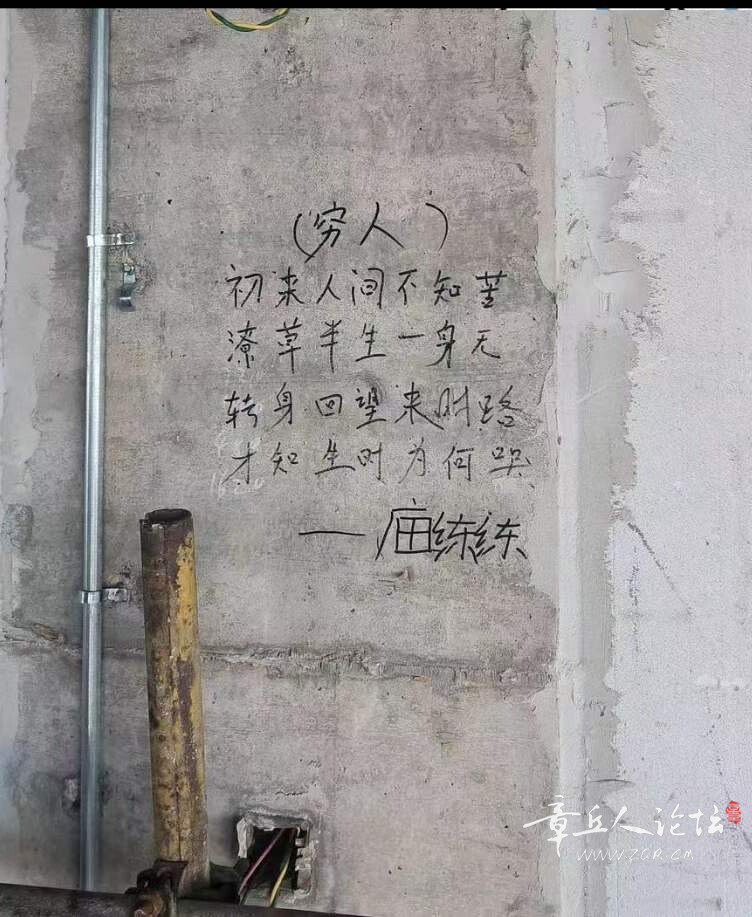 (穷人)
初来人间不知苦
潦草半生一身无
转身回望来时路
才知生时为何哭
——庙练练
章丘人论坛
www.zqr.cn